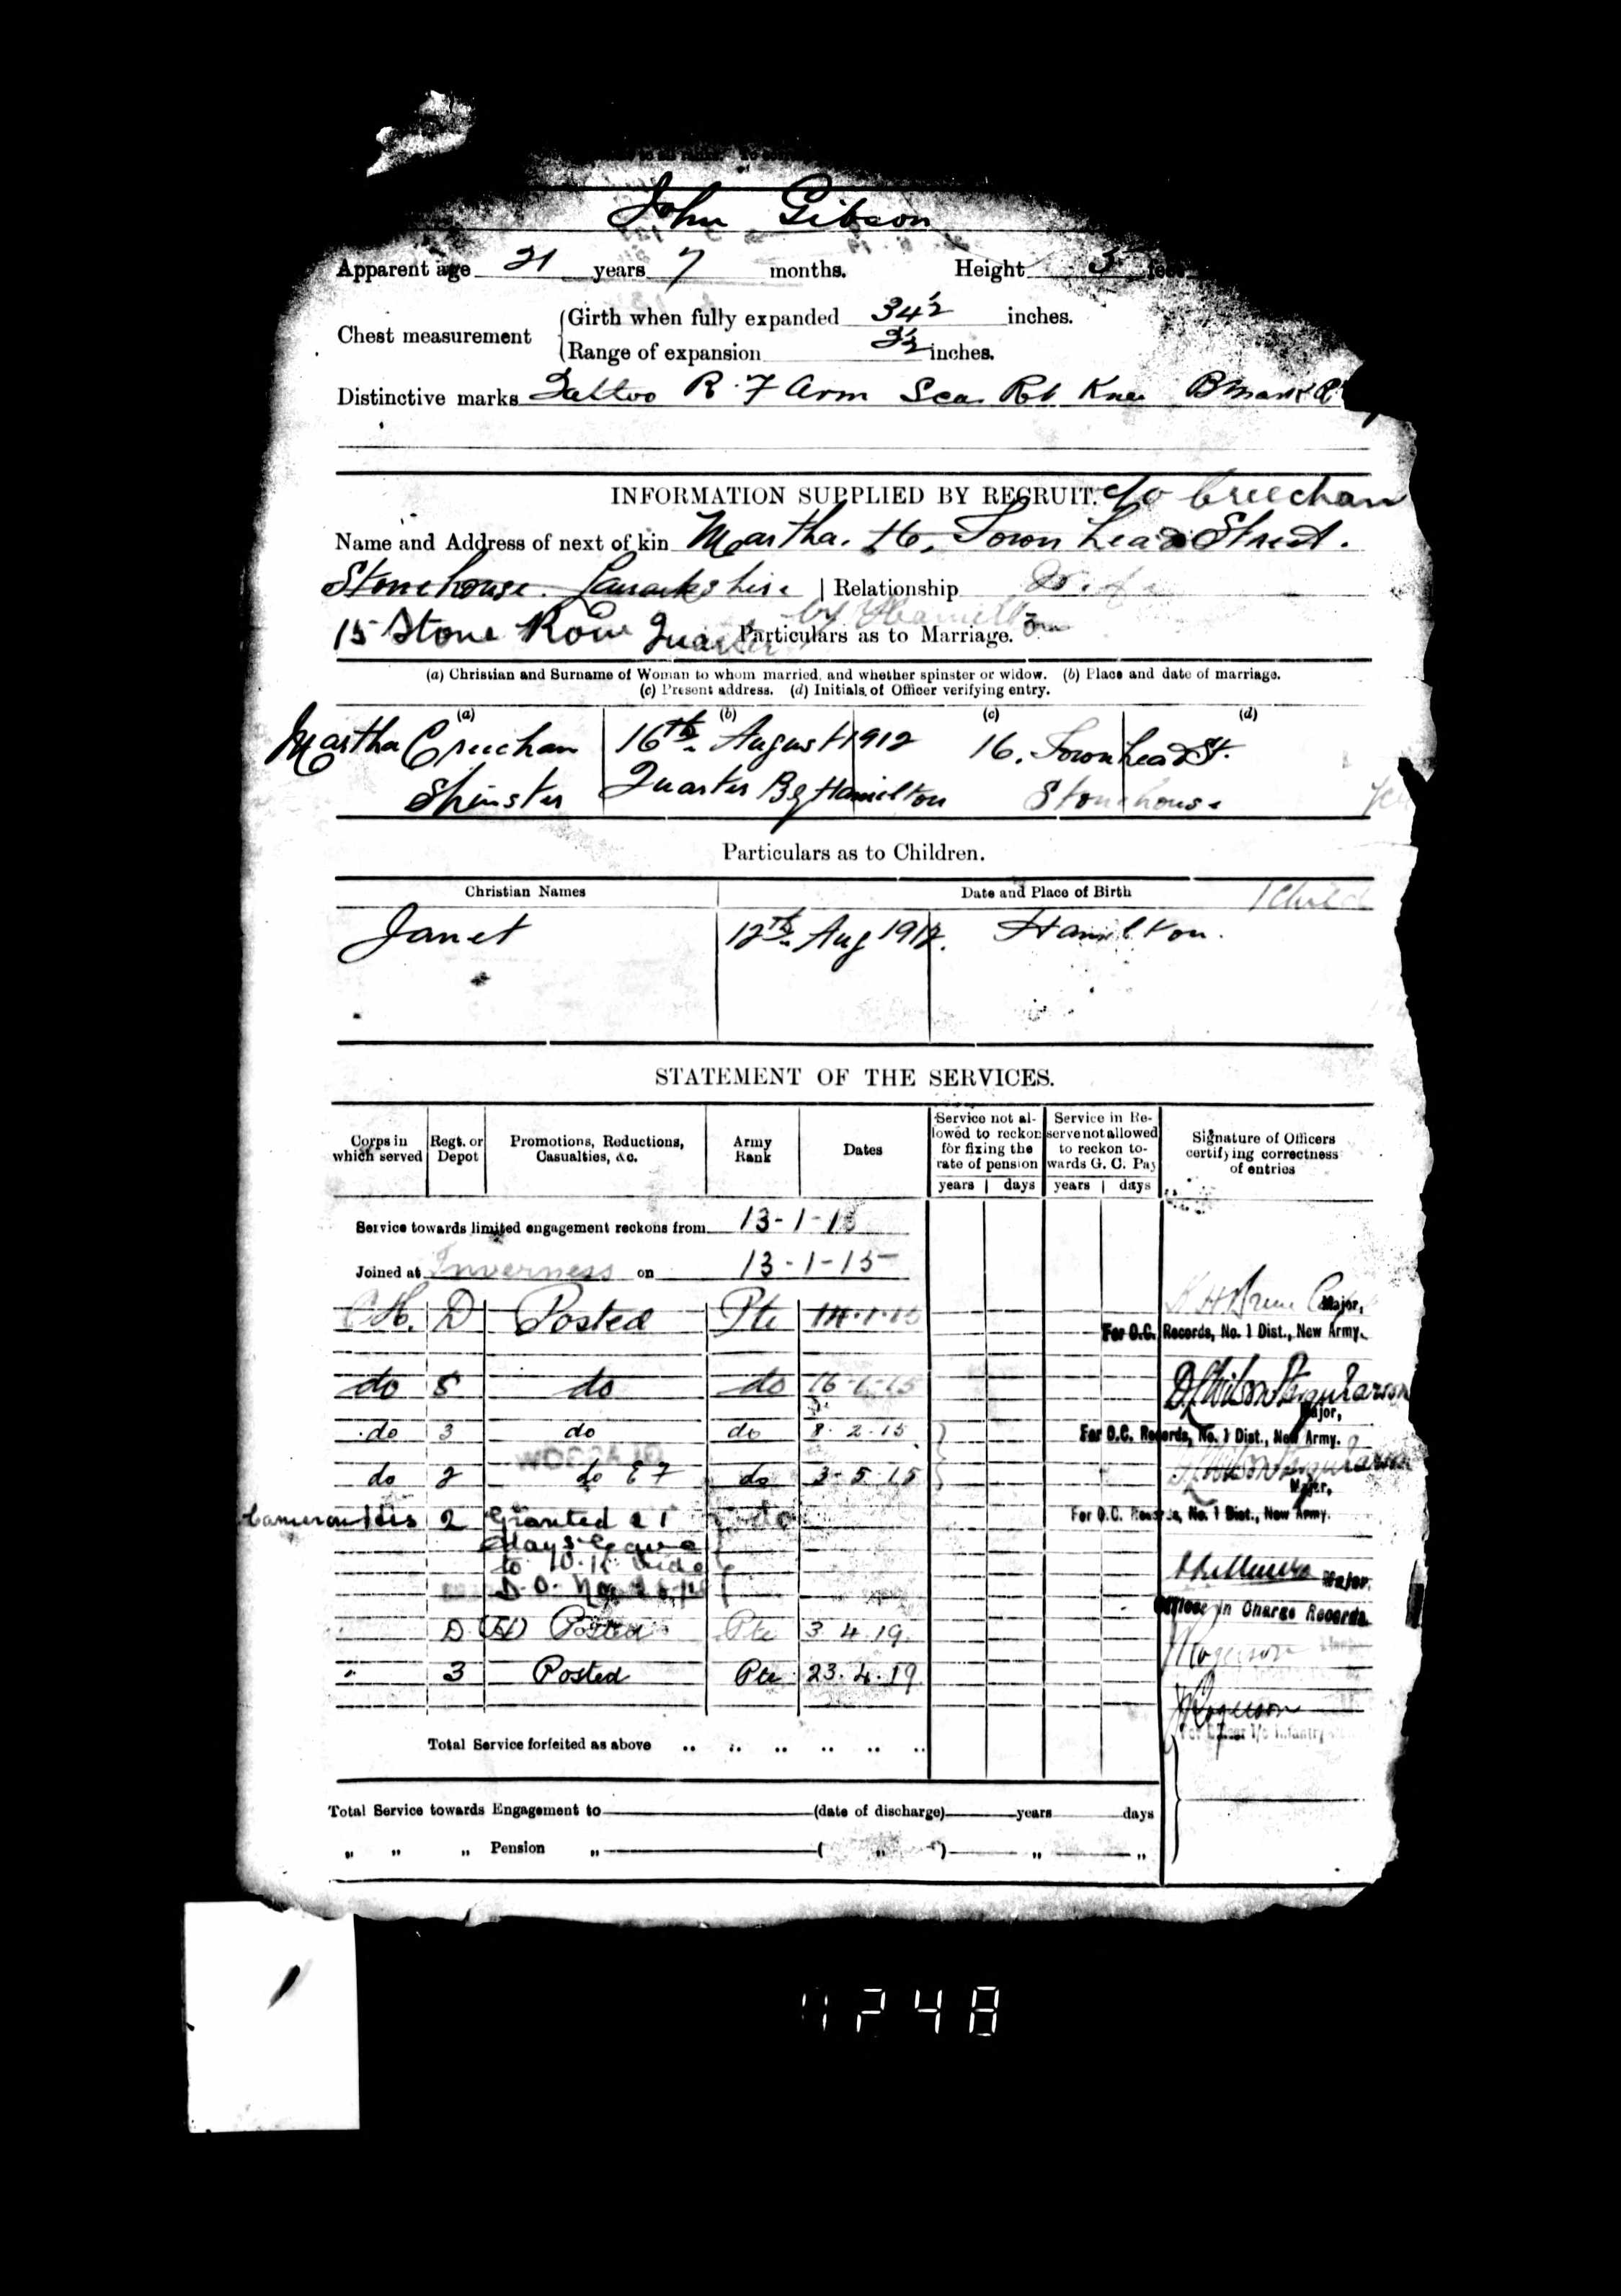 John Gibson
Apparent age 21 years 7 months. Height 5 feet
Chest measurement
Girth when fully expanded 34½ inches.
Range of expansion 3½ inches.
Distinctive marks Tattoo R. F Arm Scar Rt Knee B Mark
INFORMATION SUPPLIED BY RECRUIT. c/o Creechan
Name and Address of next of kin Martha. 16, Townhead Street.
Stonehouse. Lanarkshire | Relationship Wife
15 Stone Row Quarter by Hamilton
Particulars as to Marriage.
(a) Christian and Surname of Woman to whom married, and whether spinster or widow. (b) Place and date of marriage.
(c) Present address. (d) Initials of Officer verifying entry.
(a) (b) (c) (d)
Martha Creechan 16th August 1912 16. Townhead St.
Spinster Quarter By Hamilton Stonehouse
Particulars as to Children.
Christian Names Date and Place of Birth 1 Child
Janet 12th Aug 1912. Hamilton.
STATEMENT OF THE SERVICES.
Corps in which served
Regt. or Depot
Promotions, Reductions, Casualties, &c.
Army Rank
Dates
Service not allowed to reckon for fixing the rate of pension
Service in Reserve not allowed to reckon towards G. C. Pay
Signature of Officers certifying correctness of entries
years days years days
Service towards limited engagement reckons from 13-1-15
Joined at Inverness on 13-1-15
C.H. D Posted Pte 14.1.15
Major,
For O.C. Records, No. 1 Dist., New Army.
do 5 do do 16-1-15
Major,
do 3 do do 8.2.15
For O.C. Records, No. 1 Dist., New Army.
GLASGOW
do 2 do E F do 3-5-15
Major,
Cameron Hrs 2 Granted 21 do
For O.C. Records, No. 1 Dist., New Army.
days leave
to U.K. vide
D.O. No
Major.
Officer in Charge Records.
D Posted Pte 3.4.19.
" 3 Posted Pte 23.4.19
Rogerson
For Officer i/c Infantry
Total Service forfeited as above
Total Service towards Engagement to (date of discharge) years days
„ „ „ Pension „ ( „ ) „ „
1248